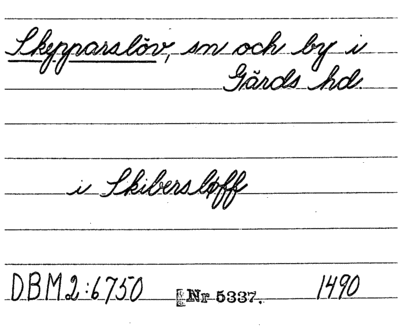 Skepparslöv, sn och by i
Gärds hd.
i Skibersløff
DBM2:6750 Nr 5337. 1490